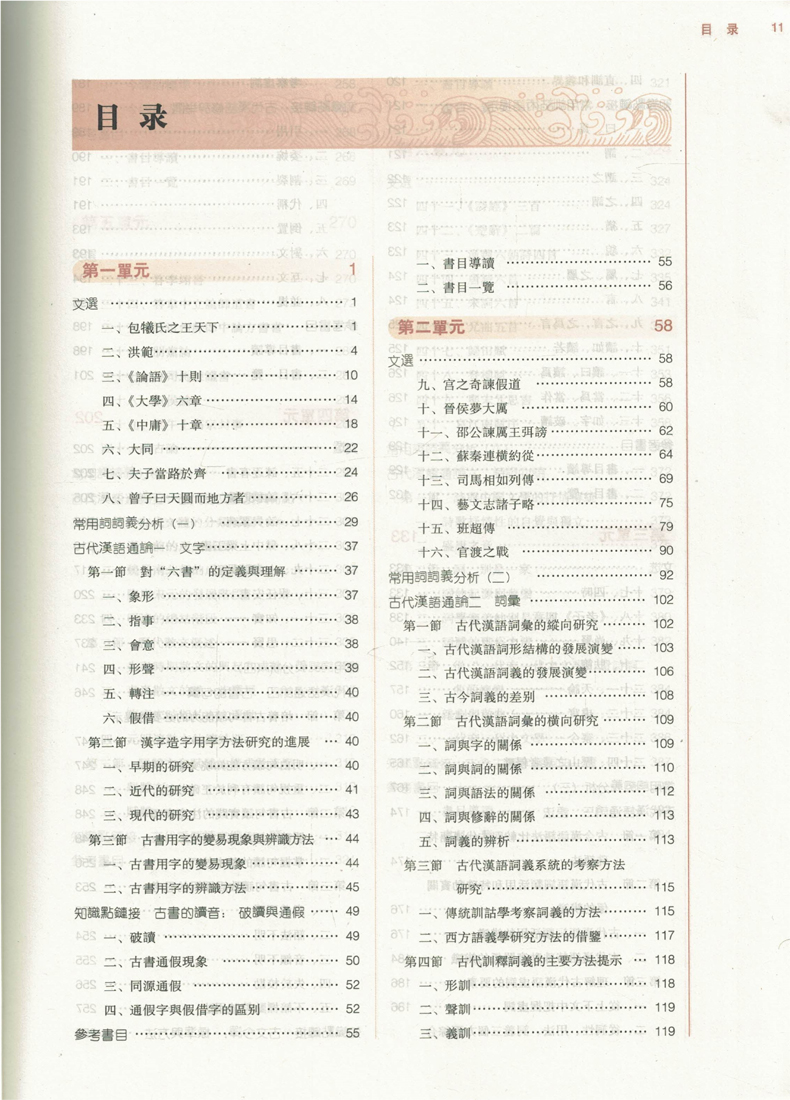 目 录 11
目 录
第一單元 1
文選 1
一、包犧氏之王天下 1
二、洪範 4
三、《論語》十則 10
四、《大學》六章 14
五、《中庸》十章 18
六、大同 22
七、夫子當路於齊 24
八、曾子曰天圓而地方者 26
常用詞詞義分析（一） 29
古代漢語通論一 文字 37
第一節 對“六書”的定義與理解 37
一、象形 37
二、指事 38
三、會意 38
四、形聲 39
五、轉注 40
六、假借 40
第二節 漢字造字用字方法研究的進展 40
一、早期的研究 40
二、近代的研究 41
三、現代的研究 43
第三節 古書用字的變易現象與辨識方法 44
一、古書用字的變易現象 44
二、古書用字的辨識方法 45
知識點鏈接 古書的讀音：破讀與通假 49
一、破讀 49
二、古書通假現象 50
三、同源通假 52
四、通假字與假借字的區别 52
參考書目 55
一、書目導讀 55
二、書目一覽 56
第二單元 58
文選 58
九、宫之奇諫假道 58
十、晉侯夢大厲 60
十一、邵公諫厲王弭謗 62
十二、蘇秦連横約從 64
十三、司馬相如列傳 69
十四、藝文志諸子略 75
十五、班超傳 79
十六、官渡之戰 90
常用詞詞義分析（二） 92
古代漢語通論二 詞彙 102
第一節 古代漢語詞彙的縱向研究 102
一、古代漢語詞形結構的發展演變 103
二、古代漢語詞義的發展演變 106
三、古今詞義的差别 108
第二節 古代漢語詞彙的横向研究 109
一、詞與字的關係 109
二、詞與詞的關係 110
三、詞與語法的關係 112
四、詞與修辭的關係 113
五、詞義的辨析 113
第三節 古代漢語詞義系統的考察方法
研究 115
一、傳統訓詁學考察詞義的方法 115
二、西方語義學研究方法的借鑒 117
第四節 古代訓釋詞義的主要方法提示 118
一、形訓 118
二、聲訓 119
三、義訓 119